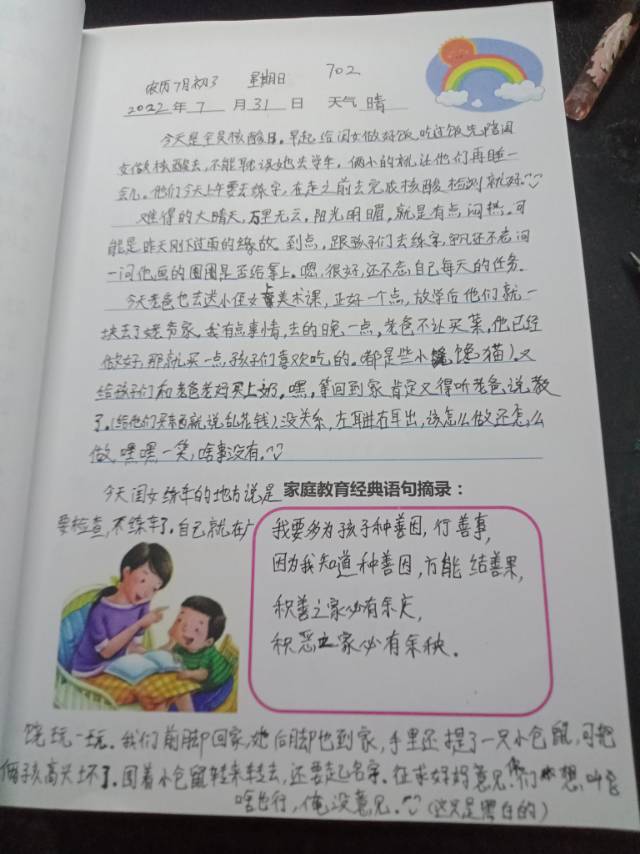 农历7月初3 星期日 702
2022年 7 月 31 日 天气 晴
今天是全员核酸日。早起给闺女做好饭,吃过饭先陪闺
女做核酸去,不能耽误她去学车,俩小的就让他们再睡一
会儿。他们今天上午要去练字,在走之前去完成核酸检测就好。
难得的大晴天,万里无云,阳光明媚,就是有点闷热。可
能是昨天刚下过雨的缘故。到点,跟孩子们去练字,还不忘问
一问他画的圈圈是否给掌上。嗯,很好,还不忘自己每天的任务。
今天老爸也去送小侄女上美术课,正好一个点,放学后他们就一
块去了姥爷家。我有点事情,去的晚一点,老爸不让买菜,他已经
做好,那就买一点孩子们喜欢吃的。(都是些小馋猫)。又
给孩子们和老爸老妈买上奶。嘿,等回到家肯定又得听老爸说教
了。(给他们买东西就说乱花钱)没关系,左耳进右耳出,该怎么做还怎么
做,嘿嘿一笑,啥事没有。
今天闺女练车的地方说是
要检查,不练车了。自己就在广
家庭教育经典语句摘录:
我要多为孩子种善因,行善事,
因为我知道种善因,方能结善果,
积善之家必有余庆,
积恶之家必有余秧。
饶玩一玩。我们前脚回家,她后脚也到家,手里还提了一只小仓鼠,可把
俩孩高兴坏了。围着小仓鼠转来转去,还要起名字。征求好妈意见,你们想叫
啥也行,俺没意见。(这只是黑白的)